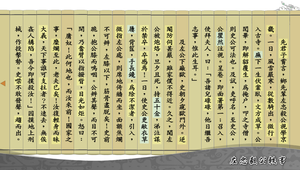 先君子嘗言，鄉先輩左忠毅公視學京
畿。一日，風雪嚴寒，從數騎出，微行，
入古寺。廡下一生伏案臥，文方成草。公
閱畢，即解貂覆生，為掩戶，叩之寺僧，
則史公可法也。及試，吏呼名，至史公，
公瞿然注視，呈卷，即面署第一；召入，
使拜夫人，曰：「吾諸兒碌碌，他日繼吾
志事，惟此生耳。」
及左公下廠獄，史朝夕獄門外。逆
閹防伺甚嚴，雖家僕不得近。久之，聞左
公被炮烙，旦夕且死，持五十金，涕泣謀
於禁卒，卒感焉！一日，使史公更敝衣草
屨，背筐，手長鑱，為除不潔者，引入。
微指左公處，則席地倚牆而坐，面額焦爛
不可辨，左膝以下，筋骨盡脫矣！史前
跪，抱公膝而嗚咽。公辨其聲，而目不可
開，乃奮臂以指撥眥，目光如炬，怒曰：
「庸奴！此何地也，而汝來前！國家之
事，糜爛至此，老夫已矣！汝復輕身而昧
大義，天下事誰可支拄者？不速去，無俟
姦人構陷，吾今即撲殺汝！」因摸地上刑
械，作投擊勢。史噤不敢發聲，趨而出。
左忠毅公軼事